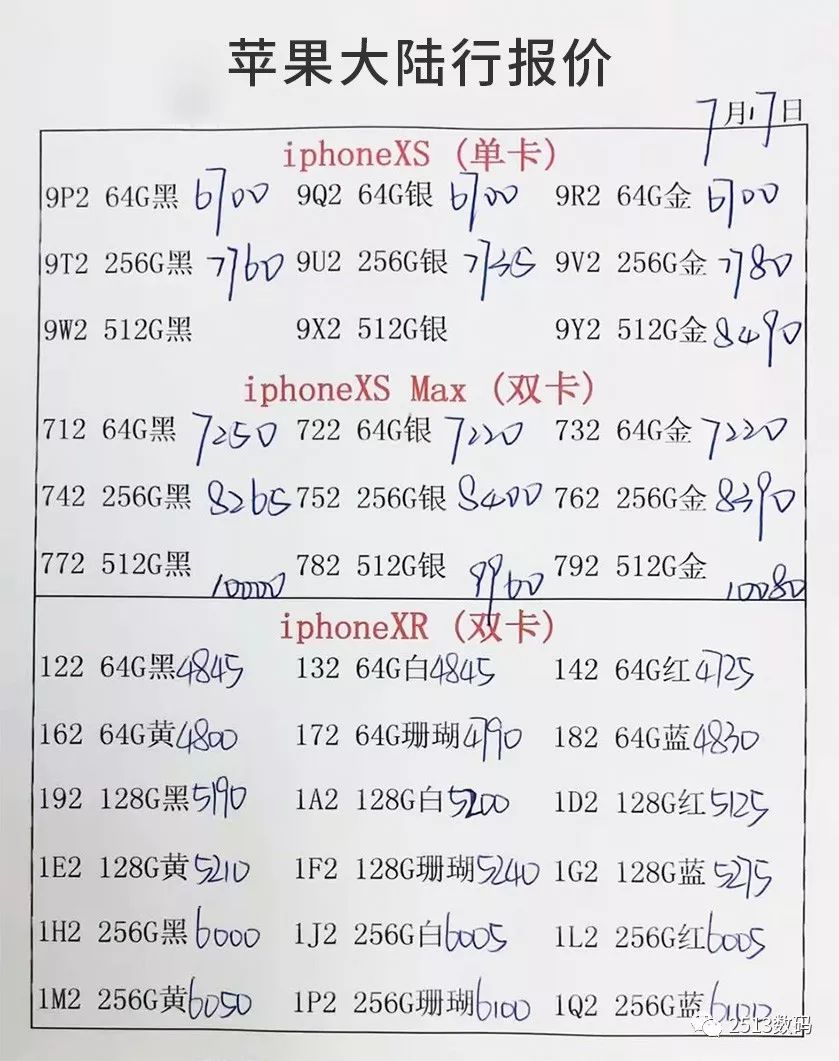 苹果大陆行报价
7月17日
iphoneXS (单卡)
9P2 64G黑 6700 9Q2 64G银 6700 9R2 64G金 6700
9T2 256G黑 7760 9U2 256G银 7735 9V2 256G金 7780
9W2 512G黑 9X2 512G银 9Y2 512G金 8490
iphoneXS Max (双卡)
712 64G黑 7250 722 64G银 7220 732 64G金 7220
742 256G黑 8265 752 256G银 8400 762 256G金 8390
772 512G黑 10000 782 512G银 9960 792 512G金 10080
iphoneXR (双卡)
122 64G黑 4845 132 64G白 4845 142 64G红 4725
162 64G黄 4800 172 64G珊瑚 4790 182 64G蓝 4830
192 128G黑 5190 1A2 128G白 5200 1D2 128G红 5125
1E2 128G黄 5210 1F2 128G珊瑚 5240 1G2 128G蓝 5275
1H2 256G黑 6000 1J2 256G白 6005 1L2 256G红 6005
1M2 256G黄 6050 1P2 256G珊瑚 6100 1Q2 256G蓝
2513数码